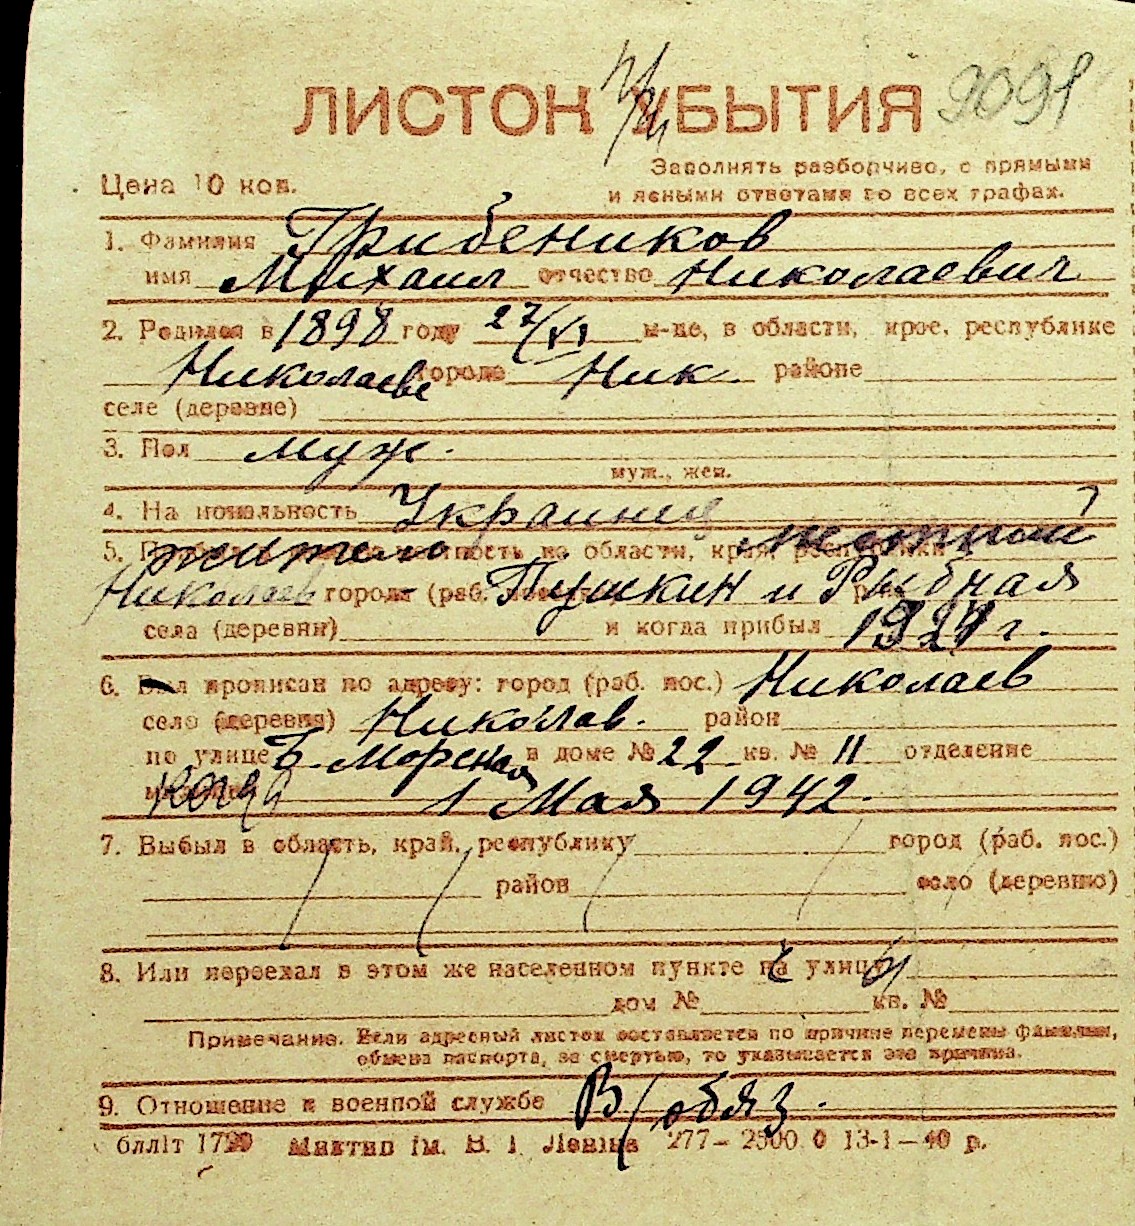 ЛИСТОК УБЫТИЯ 9091
Заполнять разборчиво, с прямыми
Цена 10 коп.
и ясными ответами во всех графах.
1. Фамилия Грибеников
имя Михаил отчество Николаевич
2. Родился в 1898 году 27/VI м-це, в области, крае, республике
Николаеве городе Ник. районе
селе (деревне)
3. Пол муж.
муж., жен.
4. Национальность Украинец
5. житель местность из области, края, республики местный
Николаев города (раб. Пушкин и Рыбная
села (деревни) и когда прибыл 1924 г.
6. Был прописан по адресу: город (раб. пос.) Николаев
село (деревня) Николаев. район
по улице Б. Морская в доме № 22 кв. № 11 отделение
когда 1 Мая 1942.
7. Выбыл в область, край, республику город (раб. пос.)
район село (деревню)
8. Или переехал в этом же населенном пункте на улицу
дом № кв. №
Примечание. Если адресный листок составляется по причине перемены фамилии,
обмена паспорта, за смертью, то указывается эта причина.
9. Отношение к военной службе В/обяз.
БЛЛІТ 1720 Миктип ім. В. І. Леніна 277–2500 0 13-1–40 р.